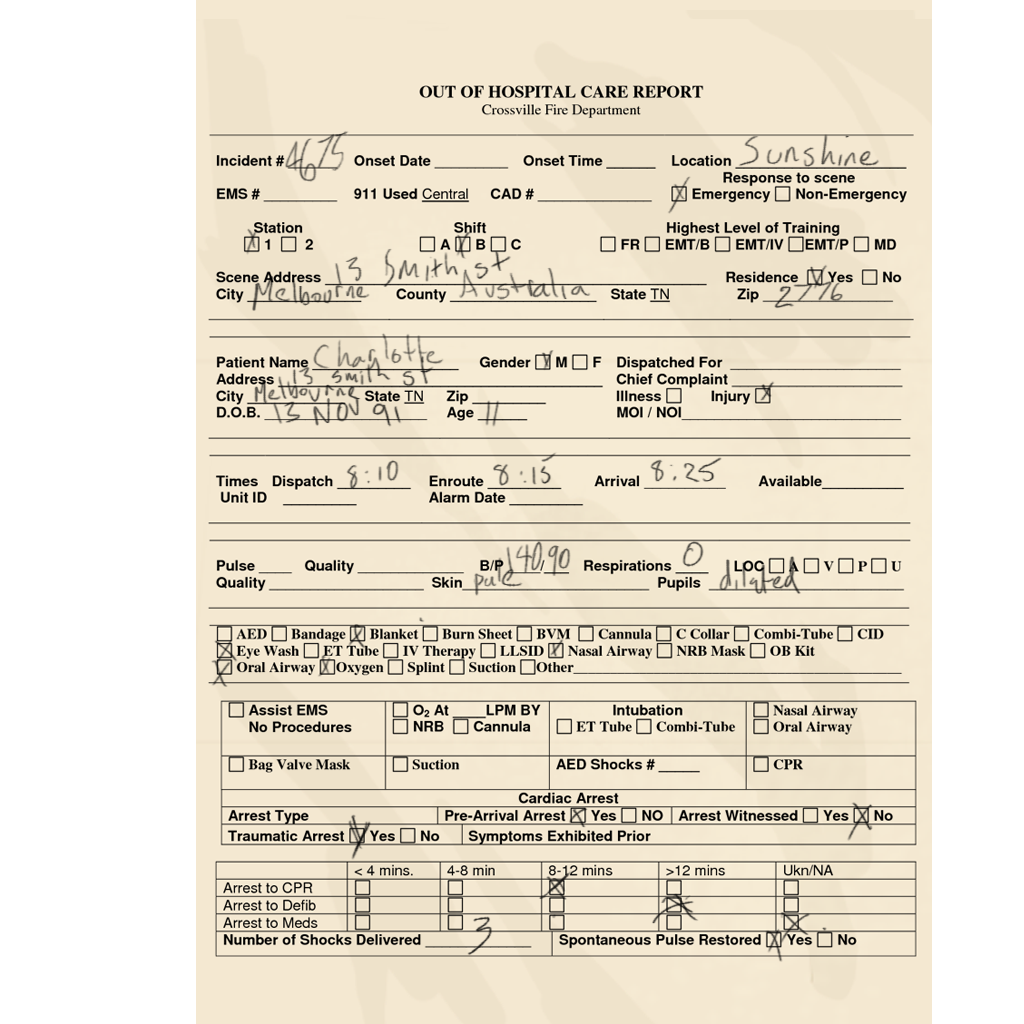 OUT OF HOSPITAL CARE REPORT
Crossville Fire Department
Incident # 4675 Onset Date ________ Onset Time ______ Location Sunshine
Response to scene
EMS # ________ 911 Used Central CAD # ____________ ☒ Emergency ☐ Non-Emergency
Station Shift Highest Level of Training
☒ 1 ☐ 2 ☐ A ☒ B ☐ C ☐ FR ☐ EMT/B ☐ EMT/IV ☐ EMT/P ☐ MD
Scene Address 13 Smith st Residence ☒ Yes ☐ No
City Melbourne County Australia State TN Zip 2776
Patient Name Charlotte Gender ☒ M ☐ F Dispatched For ____________
Address 13 smith st Chief Complaint ____________
City Melbourne State TN Zip ________ Illness ☐ Injury ☒
D.O.B. 13 NOV 91 Age 11 MOI / NOI ____________
Times Dispatch 8:10 Enroute 8:15 Arrival 8:25 Available ________
Unit ID ________ Alarm Date ________
Pulse ____ Quality ____________ B/P 140/90 Respirations 0 LOC ☐ A ☐ V ☐ P ☐ U
Quality ____________ Skin pale Pupils dilated
☐ AED ☐ Bandage ☒ Blanket ☐ Burn Sheet ☐ BVM ☐ Cannula ☐ C Collar ☐ Combi-Tube ☐ CID
☒ Eye Wash ☐ ET Tube ☐ IV Therapy ☐ LLSID ☒ Nasal Airway ☐ NRB Mask ☐ OB Kit
☒ Oral Airway ☒ Oxygen ☐ Splint ☐ Suction ☐ Other ____________
☐ Assist EMS ☐ O2 At ____LPM BY Intubation ☐ Nasal Airway
No Procedures ☐ NRB ☐ Cannula ☐ ET Tube ☐ Combi-Tube ☐ Oral Airway
☐ Bag Valve Mask ☐ Suction AED Shocks # _____ ☐ CPR
Cardiac Arrest
Arrest Type Pre-Arrival Arrest ☒ Yes ☐ NO Arrest Witnessed ☐ Yes ☒ No
Traumatic Arrest ☒ Yes ☐ No Symptoms Exhibited Prior
< 4 mins. 4-8 min 8-12 mins >12 mins Ukn/NA
Arrest to CPR ☐ ☐ ☒ ☐ ☐
Arrest to Defib ☐ ☐ ☐ ☒ ☐
Arrest to Meds ☐ ☐ ☐ ☐ ☒
Number of Shocks Delivered 3 Spontaneous Pulse Restored ☒ Yes ☐ No